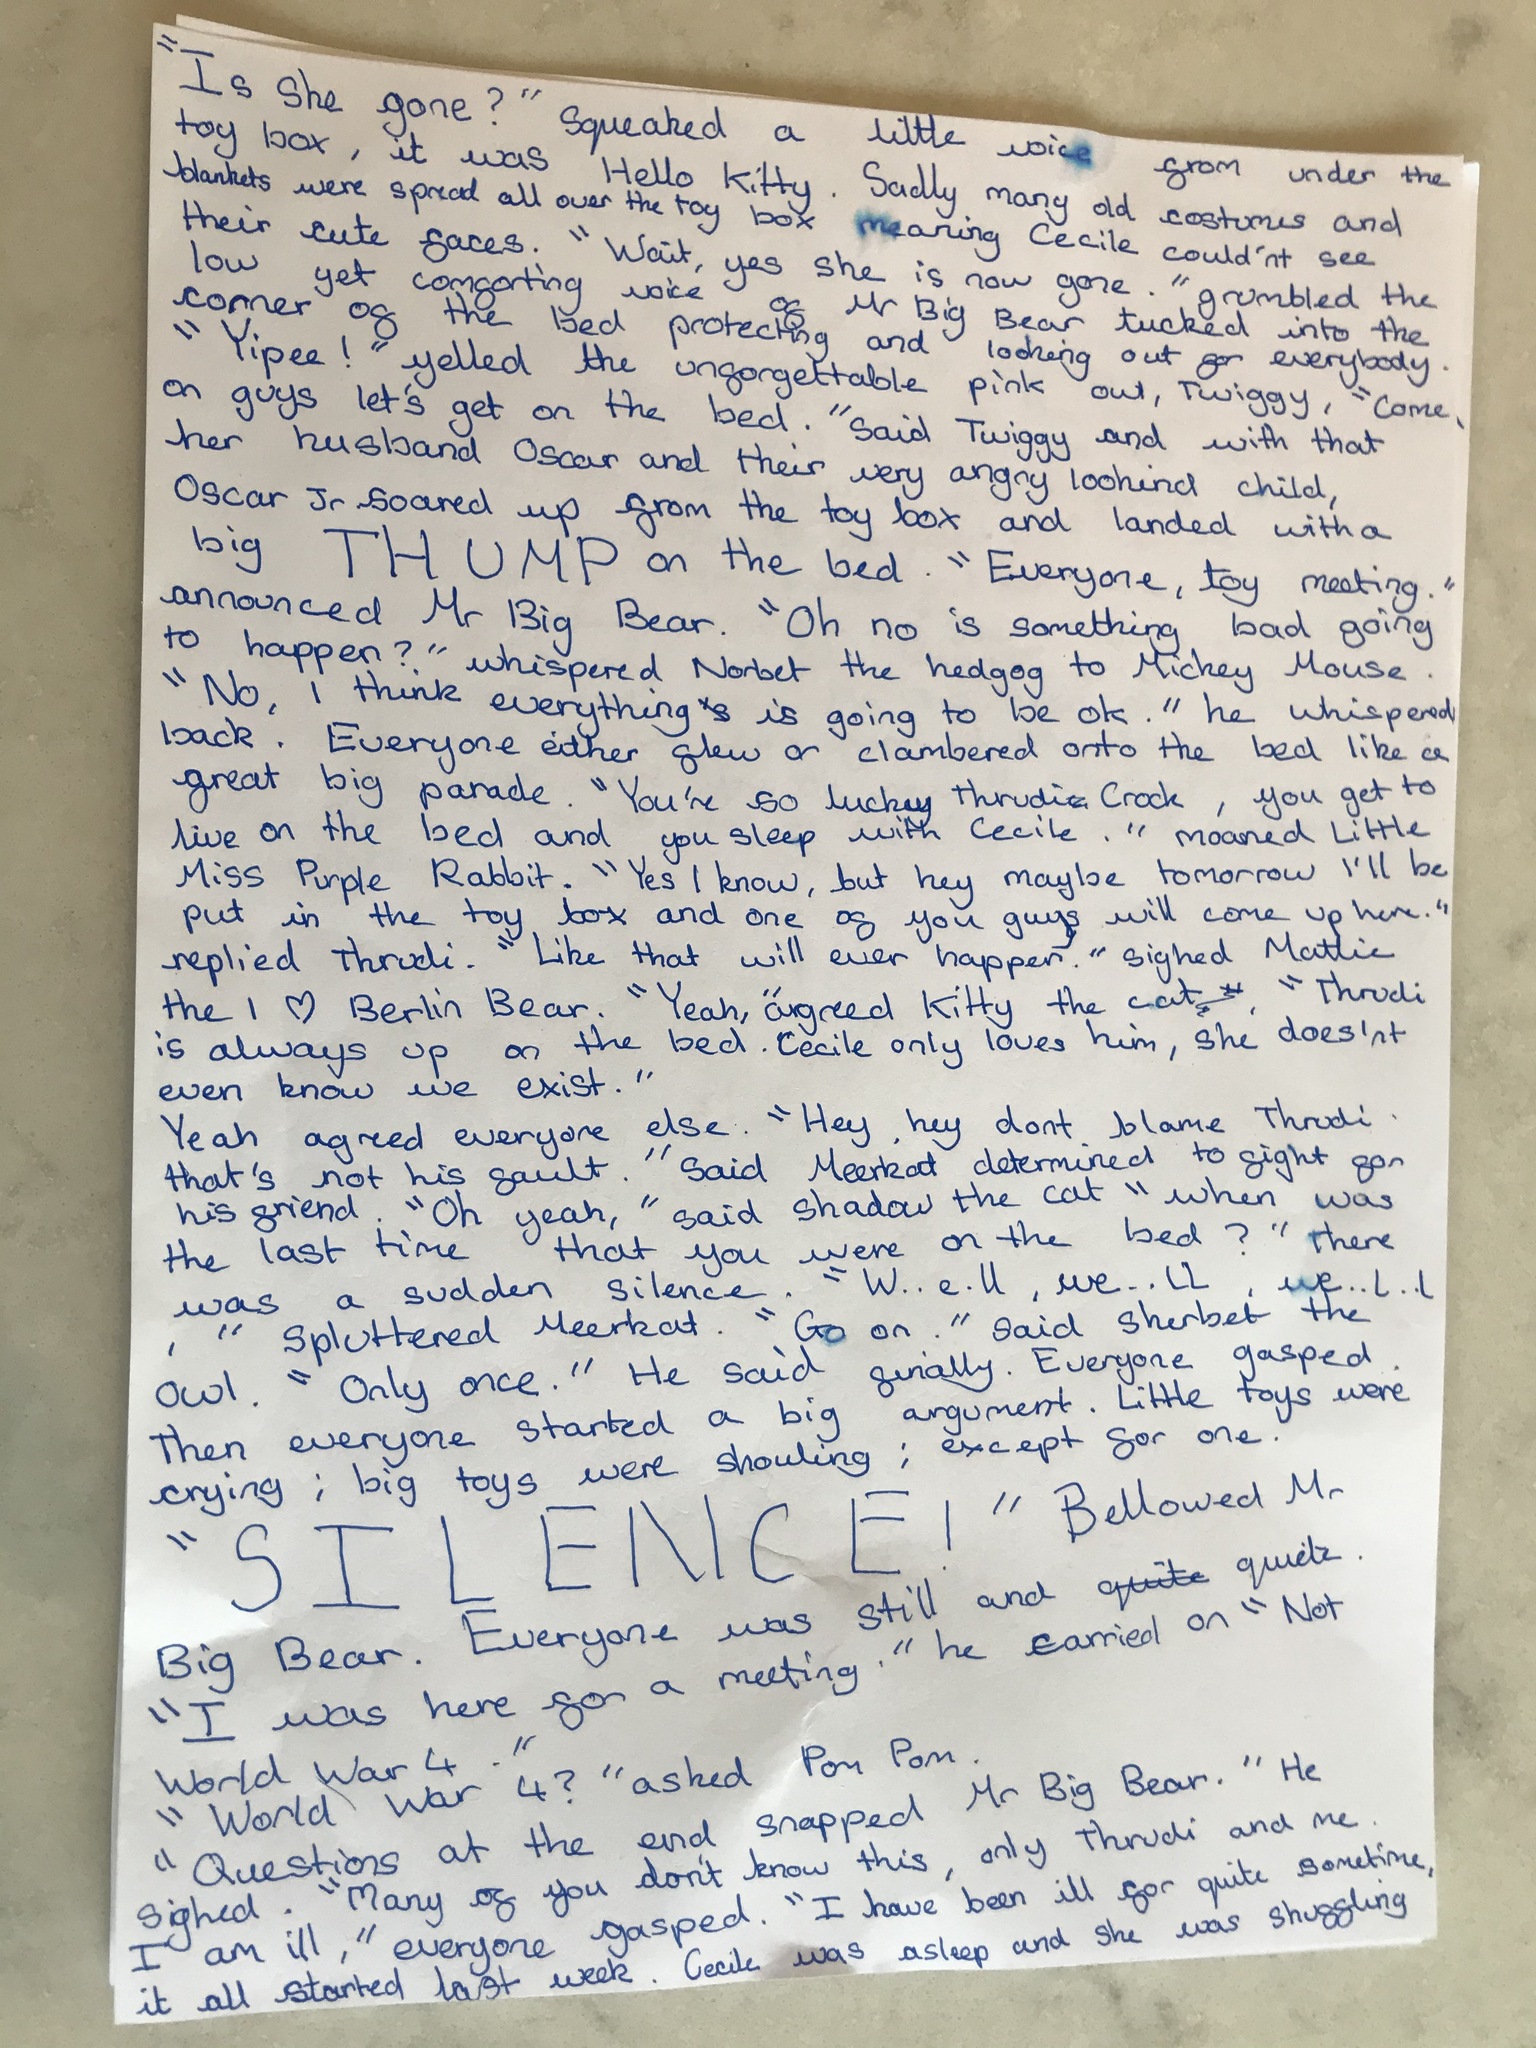 "Is she gone?" Squeaked a little voice from under the
toy box, it was Hello Kitty. Sadly many old costumes and
blankets were spread all over the toy box meaning Cecile could'nt see
their cute faces. "Wait, yes she is now gone." grumbled the
low yet comforting voice of Mr Big Bear tucked into the
corner of the bed protecting and looking out for everybody.
"Yipee!" yelled the unforgettable pink owl, Twiggy, "Come,
on guys let's get on the bed." said Twiggy and with that
her husband Oscar and their very angry lookind child,
Oscar Jr soared up from the toy box and landed with a
big THUMP on the bed. "Everyone, toy meeting."
announced Mr Big Bear. "Oh no is something bad going
to happen?" whispered Norbet the hedgog to Mickey Mouse.
"No, I think everything's is going to be ok." he whispered
back. Everyone either flew or clambered onto the bed like a
great big parade. "You're so luckey Thrudi Crock, you get to
live on the bed and you sleep with Cecile." moaned Little
Miss Purple Rabbit. "Yes I know, but hey maybe tomorrow I'll be
put in the toy box and one of you guys will come up here."
replied Thrudi. "Like that will ever happen." sighed Mattie
the I ♡ Berlin Bear. "Yeah," agreed Kitty the cat, "Thrudi
is always up on the bed. Cecile only loves him, she does'nt
even know we exist."
Yeah agreed everyone else. "Hey, hey dont blame Thrudi
that's not his fault." said Meerkat determined to fight for
his friend. "Oh yeah," said shadow the cat "when was
the last time that you were on the bed?" There
was a sudden silence. "W..e.ll, we...ll, we..l..l
," spluttered Meerkat. "Go on." said sherbet the
owl. "Only once." He said finally. Everyone gasped.
Then everyone started a big argument. Little toys were
crying; big toys were shouting; except for one.
"SILENCE!" Bellowed Mr
Big Bear. Everyone was still and quite quiet.
"I was here for a meeting." he carried on "Not
World War 4."
"World War 4?" asked Pom Pom.
"Questions at the end snapped Mr Big Bear." He
sighed. "Many of you don't know this, only Thrudi and me.
I am ill," everyone gasped. "I have been ill for quite sometime,
it all started last week. Cecile was asleep and she was snuggling